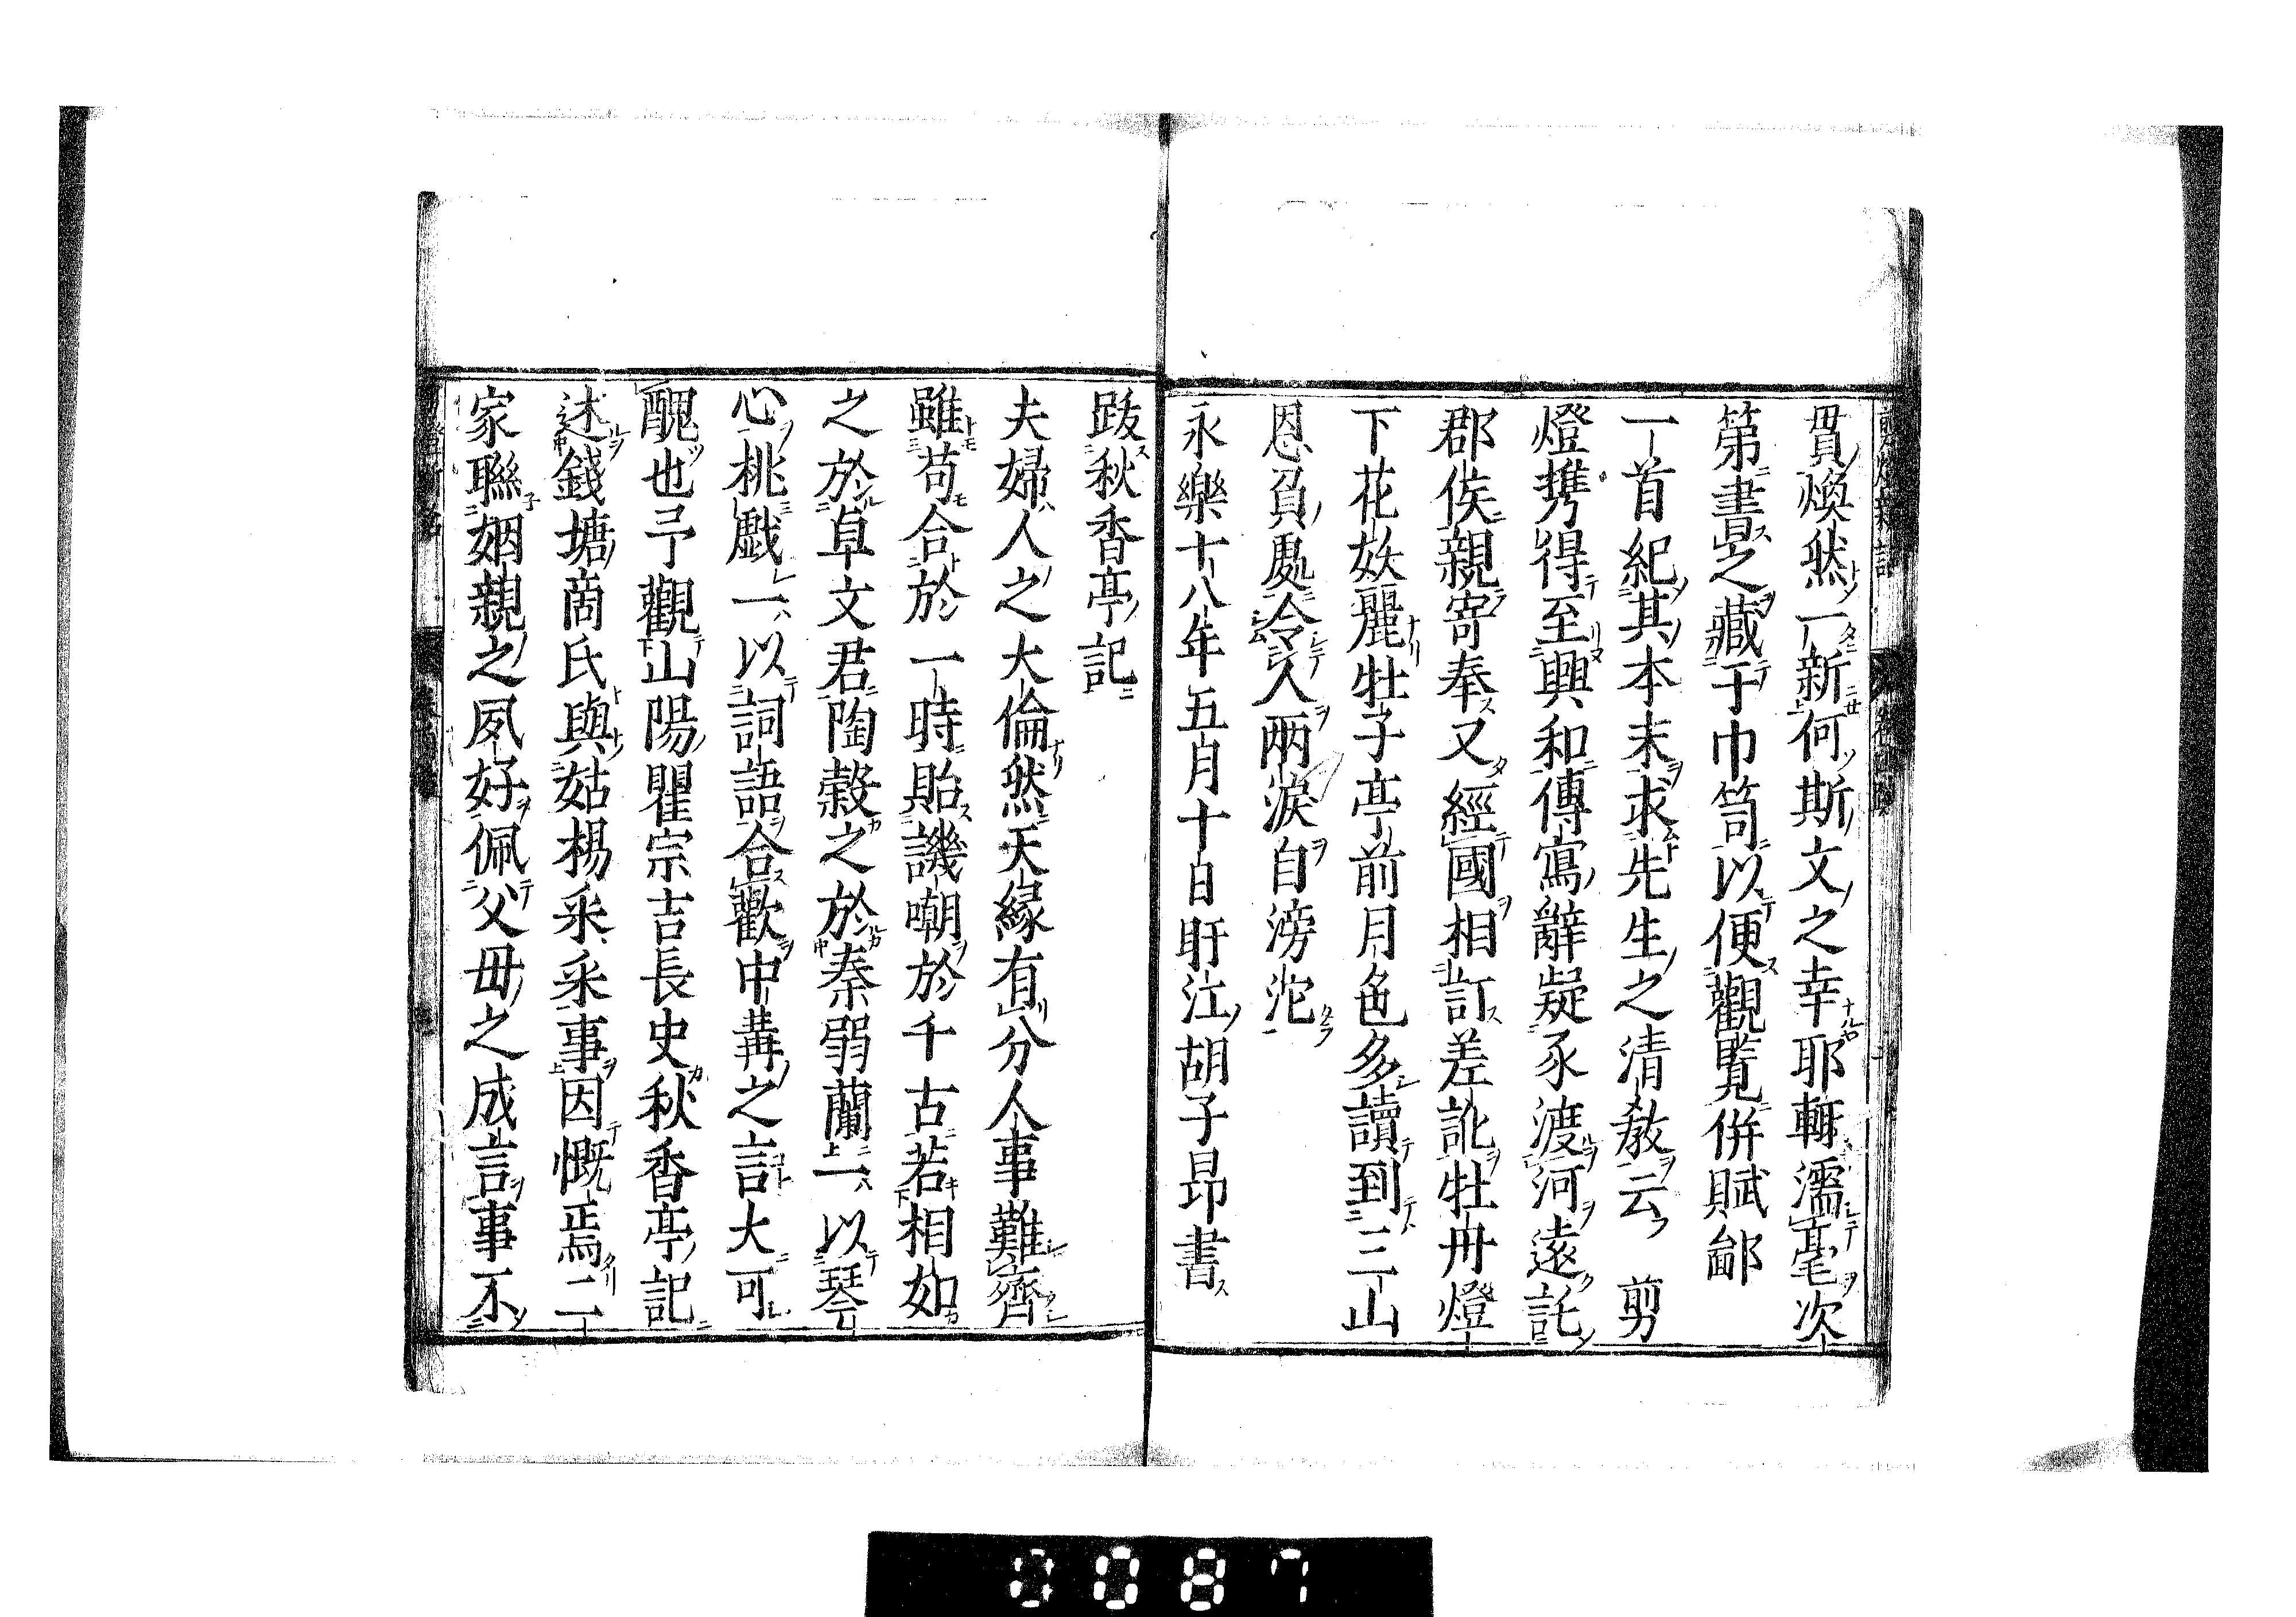 貫煥然一新何斯文之幸耶輙濡毫次
第書之藏于巾笥以便觀覽併賦鄙
一首紀其本末求先生之清敎云　剪
燈携得至興和傳寫辭疑豕渡河遠託
郡侯親寄奉又經國相訂差訛牡丹燈
下花妖麗牡子亭前月色多讀到三山
恩負處令人兩淚自滂沱
永樂十八年五月十日盱江胡子昂書
跋秋香亭記
夫婦人之大倫然天緣有分人事難齊
雖苟合於一時貽譏嘲於千古若相如
之於卓文君陶穀之於秦弱蘭一以琴
心桃戲一以詞語合歡中冓之言大可
醜也予觀山陽瞿宗吉長史秋香亭記
述錢塘商氏與姑楊采采事因慨焉二
家聯姻親之夙好佩父母之成言事不
3087